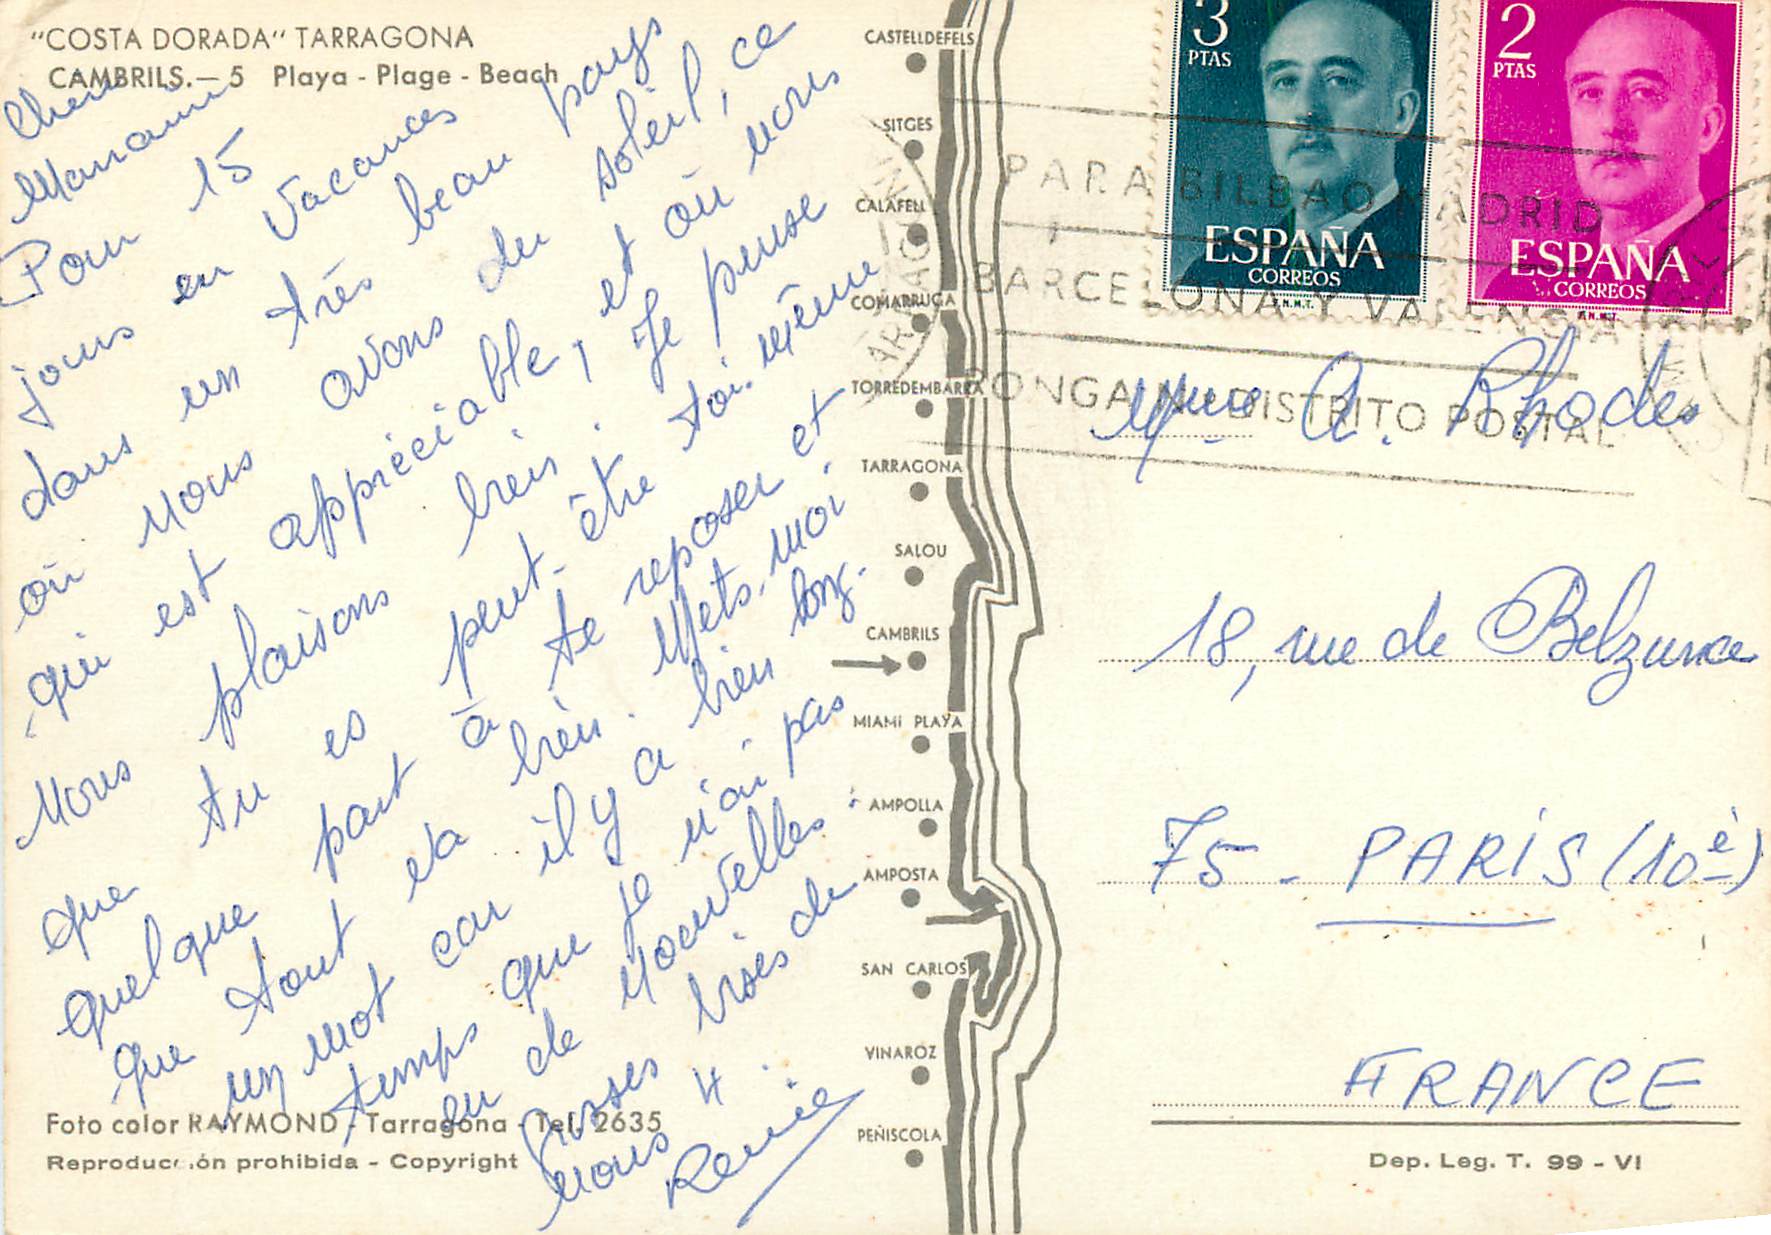 "COSTA DORADA" TARRAGONA
CAMBRILS.— 5 Playa - Plage - Beach
Chère
Mamain
Pour 15
jours en vacances
dans un très beau pays
où nous avons du soleil, ce
qui est appréciable, et où nous
nous plaisons bien. Je pense
que tu es peut-être toi-même
quelque part à te reposer et
que tout va bien. Mets-moi
un mot car il y a bien long-
temps que je n'ai pas
eu de nouvelles.
Grosses bises de
nous 4.
Renée
CASTELLDEFELS
SITGES
CALAFELL
COMARRUGA
TORREDEMBARRA
TARRAGONA
SALOU
CAMBRILS
MIAMI PLAYA
AMPOLLA
AMPOSTA
SAN CARLOS
VINAROZ
PEÑISCOLA
3
PTAS
ESPAÑA
CORREOS
F.N.M.T.
2
PTAS
ESPAÑA
CORREOS
F.N.M.T.
PARA BILBAO MADRID
BARCELONA Y VALENCIA
PONGA Nº DISTRITO POSTAL
Mme A. Rhodes
18, rue de Belzunce
75 - PARIS (10è)
FRANCE
Foto color RAYMOND - Tarragona - Tel. 2635
Reproducción prohibida - Copyright
Dep. Leg. T. 99 - VI